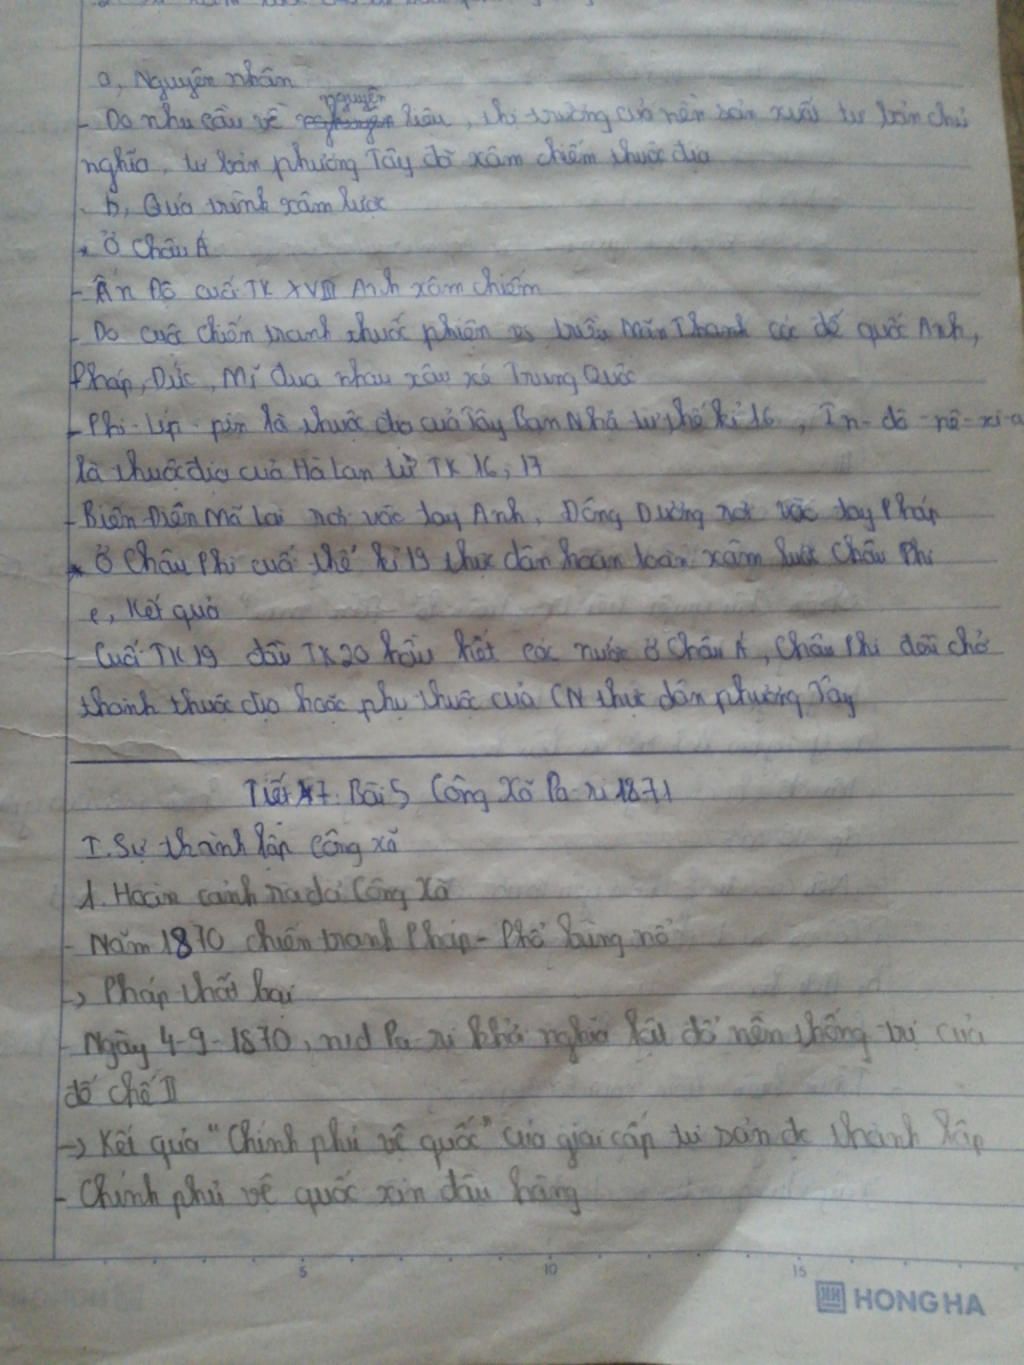 a, Nguyên nhân
- Do nhu cầu về nguyên liệu, thị trường của nền sản xuất tư bản chủ
nghĩa, tư bản phương Tây đã xâm chiếm thuộc địa
b, Quá trình xâm lược
* Ở Châu Á
- Ấn Độ cuối TK XVIII Anh xâm chiếm
- Do cuộc chiến tranh thuốc phiện vs triều Mãn Thanh các đế quốc Anh,
Pháp, Đức, Mĩ đua nhau xâu xé Trung Quốc
- Phi-Lip-pin là thuộc địa của Tây Ban Nha từ thế kỉ 16, In-đô-nê-xi-a
là thuộc địa của Hà Lan từ TK 16, 17
- Biến Điện Mã Lai rơi vào tay Anh, Đông Dương rơi vào tay Pháp
* Ở Châu Phi cuối thế kỉ 19 thực dân hoàn toàn xâm lược Châu Phi
c, Kết quả
- Cuối TK 19 đầu TK 20 hầu hết các nước ở Châu Á, Châu Phi đều chở
thành thuộc địa hoặc phụ thuộc của CN thực dân phương Tây
Tiết 7. Bài 5 Công Xã Pa-ri 1871
I. Sự thành lập công xã
1. Hoàn cảnh ra đời Công Xã
- Năm 1870 chiến tranh Pháp - Phổ bùng nổ
-> Pháp thất bại
- Ngày 4-9-1870, nd Pa-ri khởi nghĩa lật đổ nền thống trị của
đế chế II
-> Kết quả "Chính phủ vệ quốc" của giai cấp tư sản đc thành lập
- Chính phủ vệ quốc xin đầu hàng
5 10 15
HONG HA